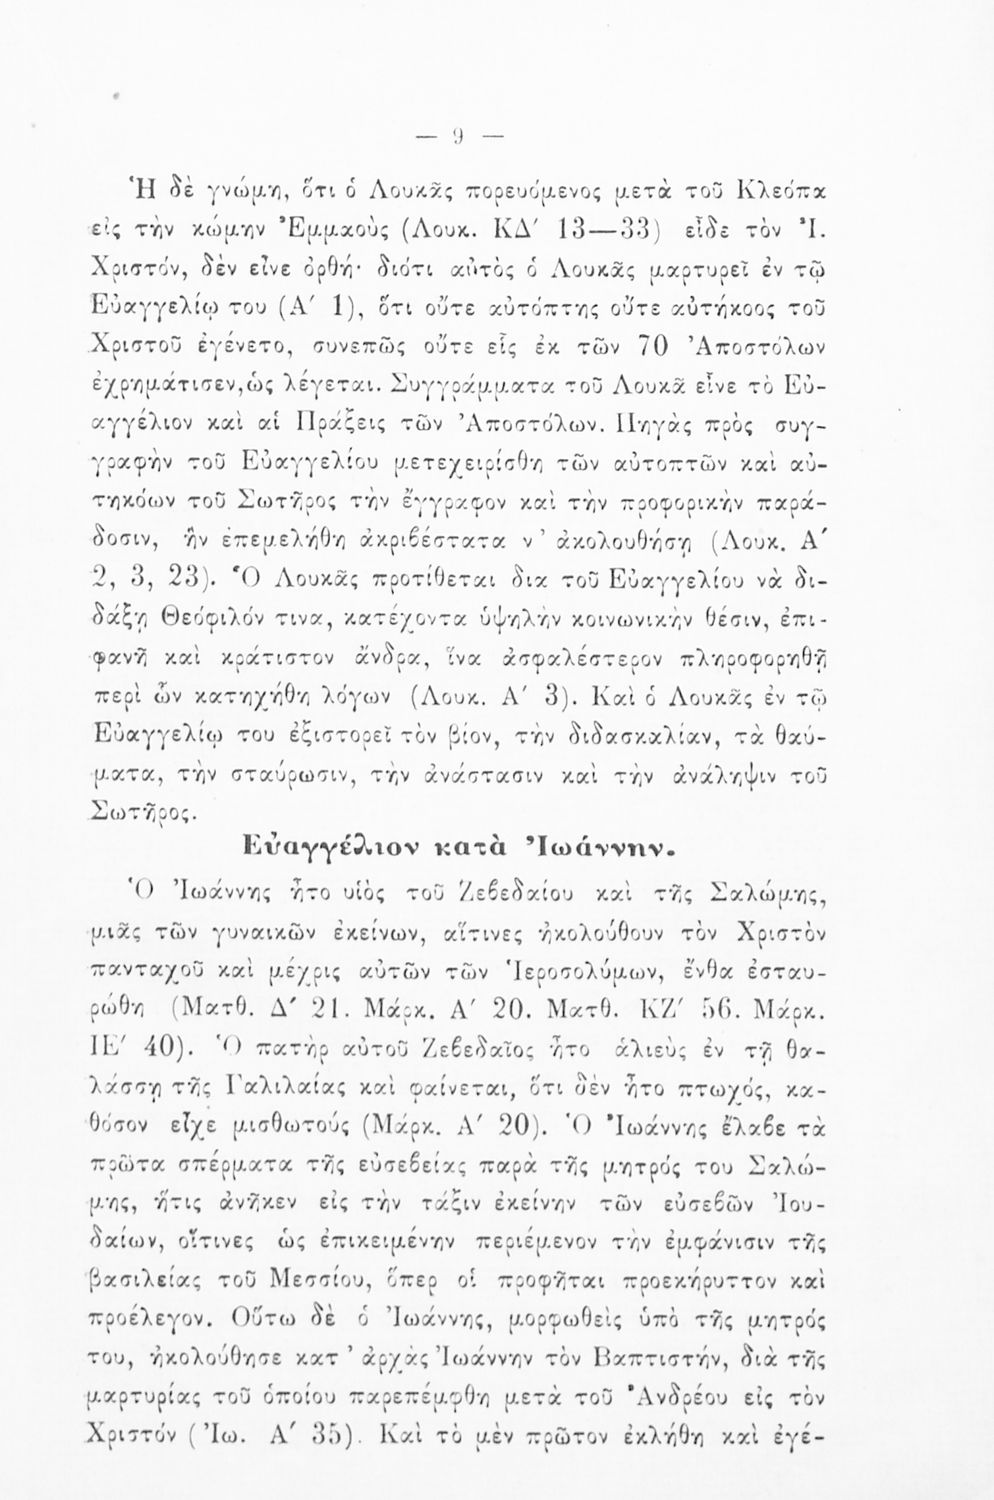 — 9 —
Ἡ δὲ γνώμη, ὅτι ὁ Λουκᾶς πορευόμενος μετὰ τοῦ Κλεόπα
εἰς τὴν κώμην Ἐμμαοὺς (Λουκ. ΚΔ′ 13—33) εἶδε τὸν Ἰ.
Χριστόν, δὲν εἶνε ὀρθή· διότι αὐτὸς ὁ Λουκᾶς μαρτυρεῖ ἐν τῷ
Εὐαγγελίῳ του (Α′ 1), ὅτι οὔτε αὐτόπτης οὔτε αὐτήκοος τοῦ
Χριστοῦ ἐγένετο, συνεπῶς οὔτε εἷς ἐκ τῶν 70 Ἀποστόλων
ἐχρημάτισεν, ὡς λέγεται. Συγγράμματα τοῦ Λουκᾶ εἶνε τὸ Εὐ-
αγγέλιον καὶ αἱ Πράξεις τῶν Ἀποστόλων. Πηγὰς πρὸς συγ-
γραφὴν τοῦ Εὐαγγελίου μετεχειρίσθη τῶν αὐτοπτῶν καὶ αὐ-
τηκόων τοῦ Σωτῆρος τὴν ἔγγραφον καὶ τὴν προφορικὴν παρά-
δοσιν, ἣν ἐπεμελήθη ἀκριβέστατα ν’ ἀκολουθήσῃ (Λουκ. Α′
2, 3, 23). Ὁ Λουκᾶς προτίθεται δια τοῦ Εὐαγγελίου νὰ δι-
δάξῃ Θεόφιλόν τινα, κατέχοντα ὑψηλὴν κοινωνικὴν θέσιν, ἐπι-
φανῆ καὶ κράτιστον ἄνδρα, ἵνα ἀσφαλέστερον πληροφορηθῇ
περὶ ὧν κατηχήθη λόγων (Λουκ. Α′ 3). Καὶ ὁ Λουκᾶς ἐν τῷ
Εὐαγγελίῳ του ἐξιστορεῖ τὸν βίον, τὴν διδασκαλίαν, τὰ θαύ-
ματα, τὴν σταύρωσιν, τὴν ἀνάστασιν καὶ τὴν ἀνάληψιν τοῦ
Σωτῆρος.
Εὐαγγέλιον κατὰ Ἰωάννην.
Ὁ Ἰωάννης ἦτο υἱὸς τοῦ Ζεβεδαίου καὶ τῆς Σαλώμης,
μιᾶς τῶν γυναικῶν ἐκείνων, αἵτινες ἠκολούθουν τὸν Χριστὸν
πανταχοῦ καὶ μέχρις αὐτῶν τῶν Ἱεροσολύμων, ἔνθα ἐσταυ-
ρώθη (Ματθ. Δ′ 21. Μάρκ. Α′ 20. Ματθ. ΚΖ′ 56. Μάρκ.
ΙΕ′ 40). Ὁ πατὴρ αὐτοῦ Ζεβεδαῖος ἦτο ἁλιεὺς ἐν τῇ θα-
λάσσῃ τῆς Γαλιλαίας καὶ φαίνεται, ὅτι δὲν ἦτο πτωχός, κα-
θόσον εἶχε μισθωτούς (Μάρκ. Α′ 20). Ὁ Ἰωάννης ἔλαβε τὰ
πρῶτα σπέρματα τῆς εὐσεβείας παρὰ τῆς μητρός του Σαλώ-
μης, ἥτις ἀνῆκεν εἰς τὴν τάξιν ἐκείνην τῶν εὐσεβῶν Ἰου-
δαίων, οἵτινες ὡς ἐπικειμένην περιέμενον τὴν ἐμφάνισιν τῆς
βασιλείας τοῦ Μεσσίου, ὅπερ οἱ προφῆται προεκήρυττον καὶ
προέλεγον. Οὕτω δὲ ὁ Ἰωάννης, μορφωθεὶς ὑπὸ τῆς μητρός
του, ἠκολούθησε κατ’ ἀρχὰς Ἰωάννην τὸν Βαπτιστήν, διὰ τῆς
μαρτυρίας τοῦ ὁποίου παρεπέμφθη μετὰ τοῦ Ἀνδρέου εἰς τὸν
Χριστόν (Ἰω. Α′ 35). Καὶ τὸ μὲν πρῶτον ἐκλήθη καὶ ἐγέ-